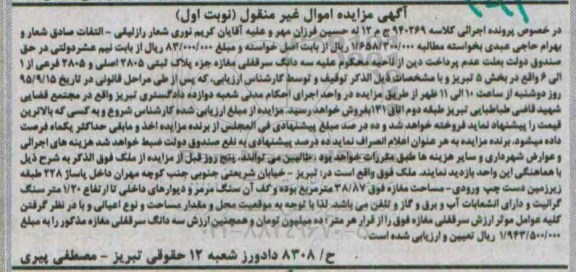 آگهی مزایده اموال غیر منقول (نوبت اول)
در خصوص پرونده اجرائی کلاسه ۹۴۰۲۶۹ ج م ۱۲ له حسین فرزان مهر و علیه آقایان کریم نوری شعار رازلیقی - التفات صادق شعار و
بهرام حاجی عبدی بخواسته مطالبه ۱/۶۵۸/۳۰۰/۰۰۰ ریال از بابت اصل خواسته و مبلغ ۸۳/۰۰۰/۰۰۰ ریال از بابت نیم عشر دولتی در حق
صندوق دولت بعلت عدم پرداخت دین از ناحیه محکوم علیه سه دانگ سرقفلی مغازه جزء پلاک ثبتی ۲۸۰۵ اصلی و ۲۸۰۵ فرعی از ۱
الی ۶ واقع در بخش ۵ تبریز و با مشخصات ذیل الذکر توقیف و توسط کارشناس ارزیابی، که پس از طی مراحل قانونی در تاریخ ۹۵/۹/۱۵
روز دوشنبه از ساعت ۱۰ الی ۱۱ ظهر از طریق مزایده در واحد اجرای احکام مدنی شعبه دوازده دادگستری تبریز واقع در مجتمع قضایی
شهید قاضی طباطبایی تبریز طبقه دوم اتاق ۱۳۱ بفروش خواهد رسید. مزایده از مبلغ ارزیابی شده کارشناس شروع و به کسی که بالاترین
قیمت را پیشنهاد نماید فروخته خواهد شد و ده در صد مبلغ پیشنهادی فی المجلس از برنده مزایده اخذ و مابقی حداکثر یکماه فرصت
داده میشود. برنده مزایده به هر عنوان اعلام انصراف نماید ده درصد پیشنهادی به نفع صندوق دولت ضبط خواهد شد. هزینه های اجرائی
و عوارض شهرداری و سایر هزینه ها طبق مقررات خواهد بود. طالبین می توانند، پنج روز قبل از مزایده از ملک فوق الذکر به شرح ذیل
با هماهنگی این واحد بازدید نمایند. ملک فوق واقع است در: تبریز - خیابان شریعتی جنوبی جنب کوچه مهران داخل پاساژ ۲۲۸ طبقه
زیرزمین دست چپ ورودی - مساحت مغازه فوق ۳۸/۸۷ مترمربع بوده و کف آن سنگ مرمر و دیوارهای داخلی تا ارتفاع ۱/۲۰ متر سنگ
گرانیت و دارای انشعابات آب و برق و گاز و تلفن می باشد. لذا با توجه به موقعیت محل و مقدار مساحت و نوع اعیانی و با در نظر گرفتن
کلیه عوامل موثر ارزش سرقفلی مغازه فوق را از قرار هر متر ۱ ده میلیون تومان و همچنین ارزش سه دانگ سرقفلی مغازه مذکور را به مبلغ
۱/۹۴۳/۵۰۰/۰۰۰ ریال تعیین و ارزیابی شده است
ح/ ۸۳۰۸ دادورز شعبه ۱۲ حقوقی تبریز - مصطفی پیری